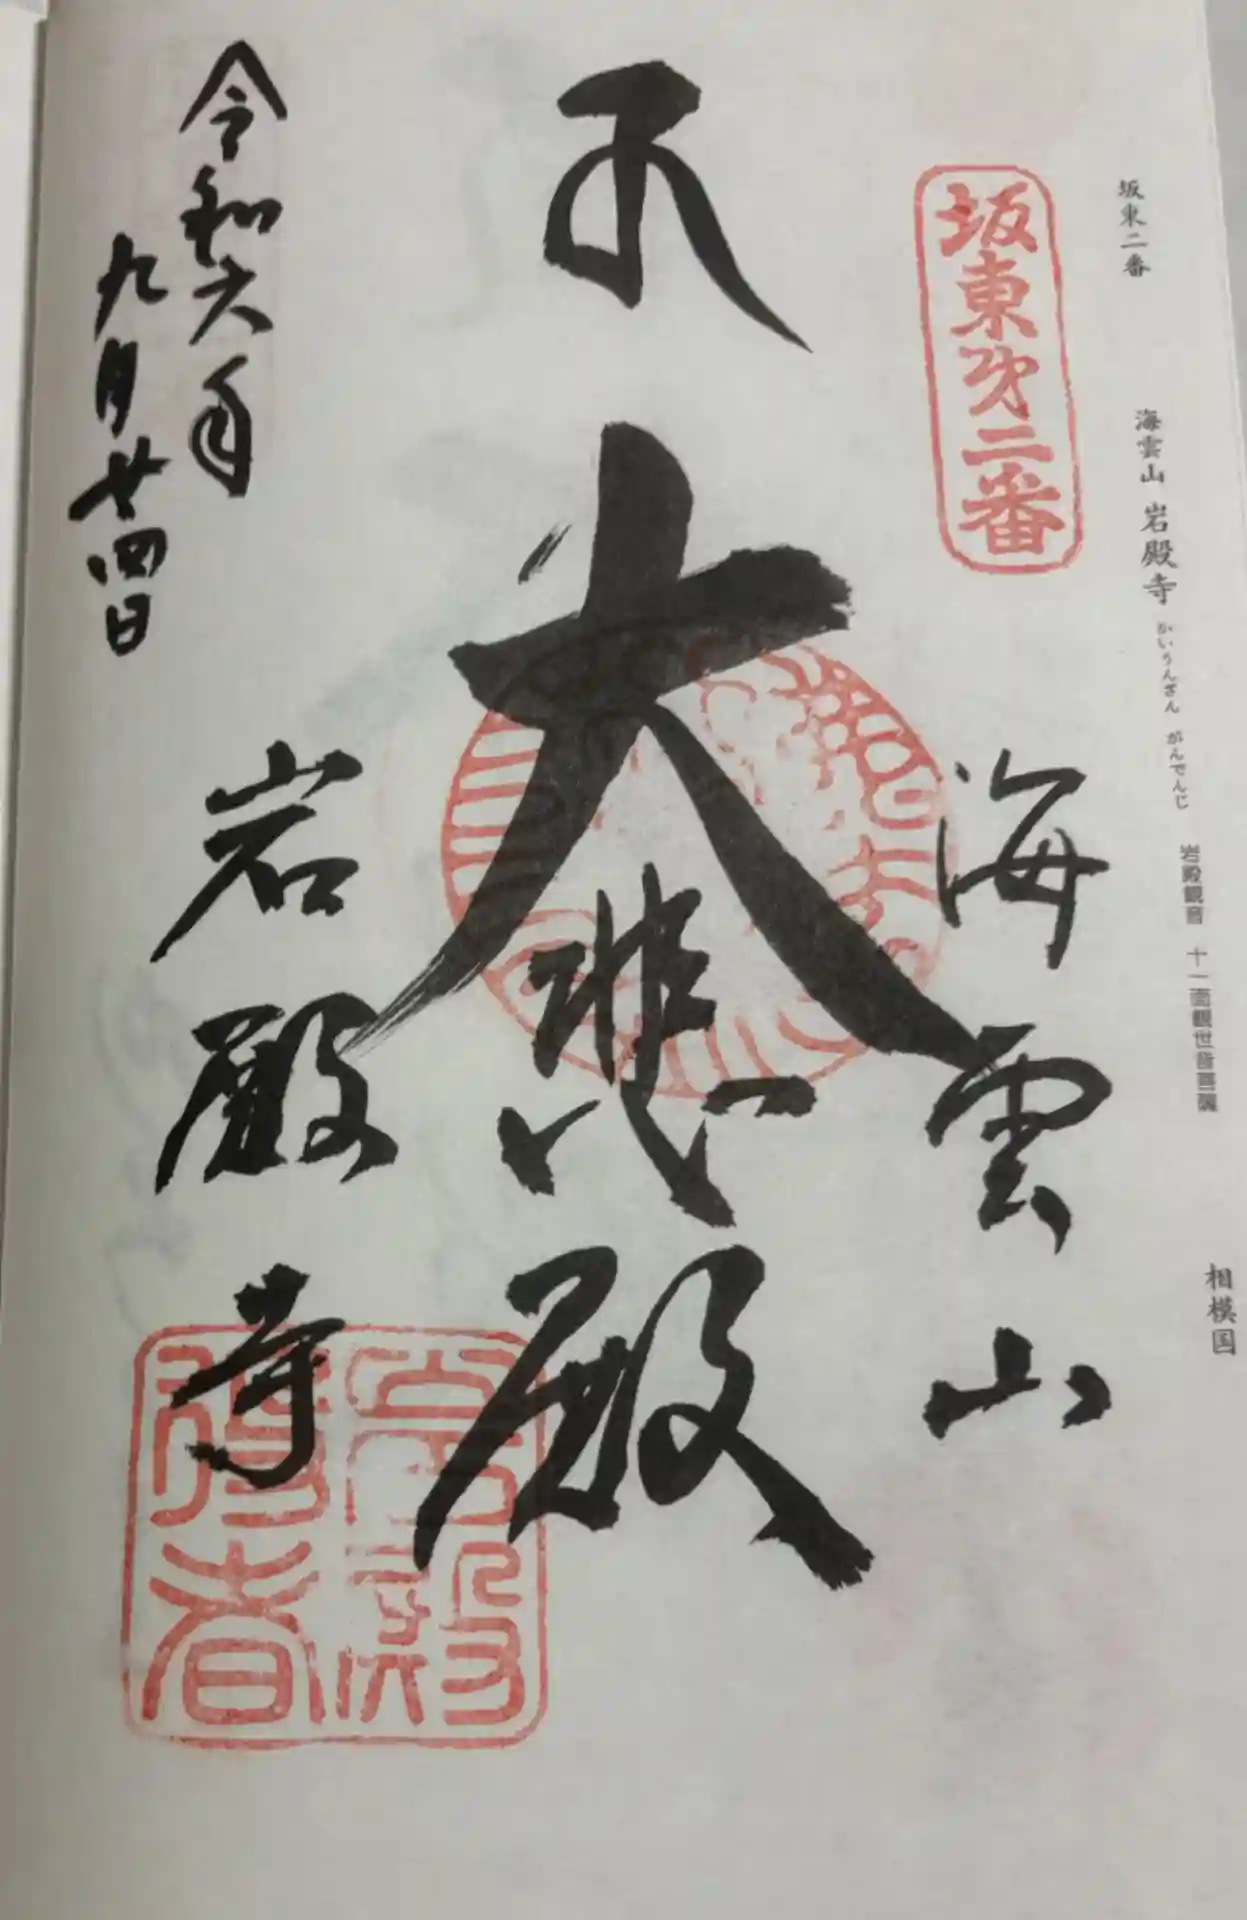 坂東二番 海雲山 岩殿寺 かいうんざん がんでんじ 岩殿観音 十一面観世音菩薩 相模国
坂東第二番
海雲山
大悲殿
岩殿寺
令和六年
九月廿四日